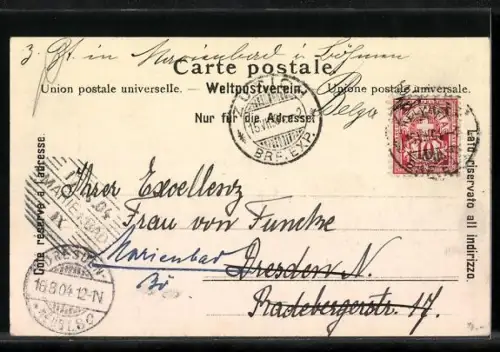 z. Zt. in Marienbad i. Böhmen
Carte postale.
Union postale universelle. — Weltpostverein. — Unione postale universale.
Nur für die Adresse
ZÜRICH
BRF. EXP.
10
Côté réservé à l'adresse.
Lato riservato all indirizzo.
MARIENBAD
Ihrer Excellenz
Frau von Funcke
Marienbad
Bö
Dresden N.
Radebergerstr. 17.
DRESDEN
16.8.04.12-N